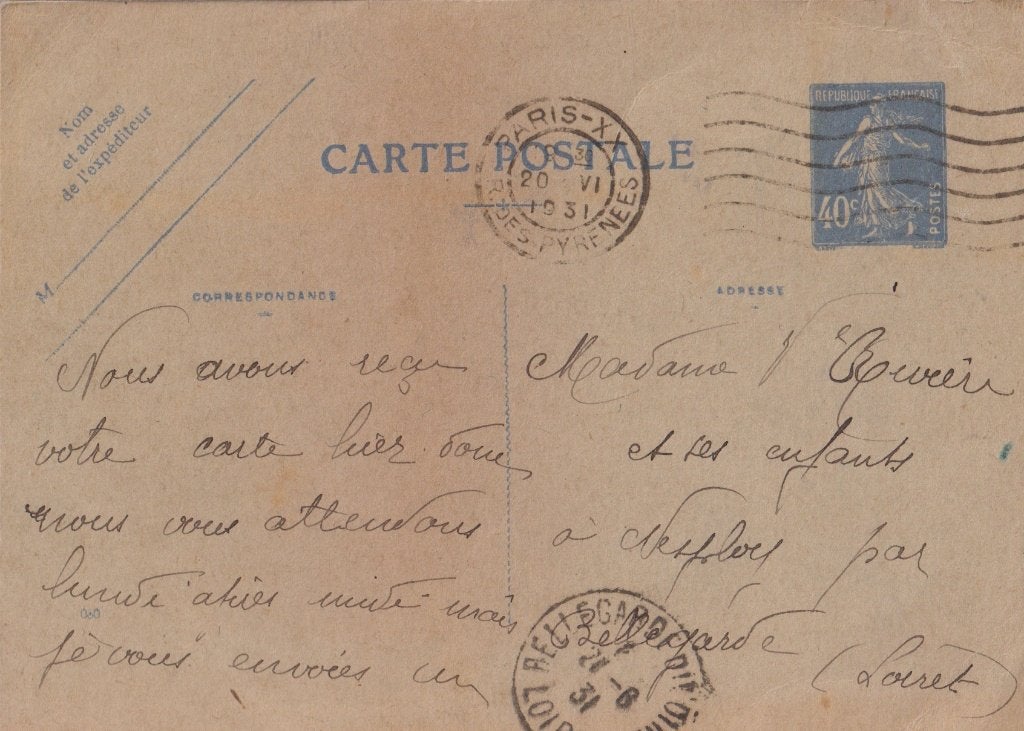 Nom
et adresse
de l'expéditeur
M
CARTE POSTALE
PARIS-XX
R. DES PYRENEES
20 VI
1931
REPUBLIQUE FRANÇAISE
40c
POSTES
CORRESPONDANCE
Nous avons reçu
votre carte hier donc
nous vous attendons
lundi après midi mais
je vous envoies un
030
ADRESSE
Madame V Rivière
et ses enfants
à Nesploy par
Bellegarde
(Loiret)
BELLEGARDE-DU-
21 -6
31